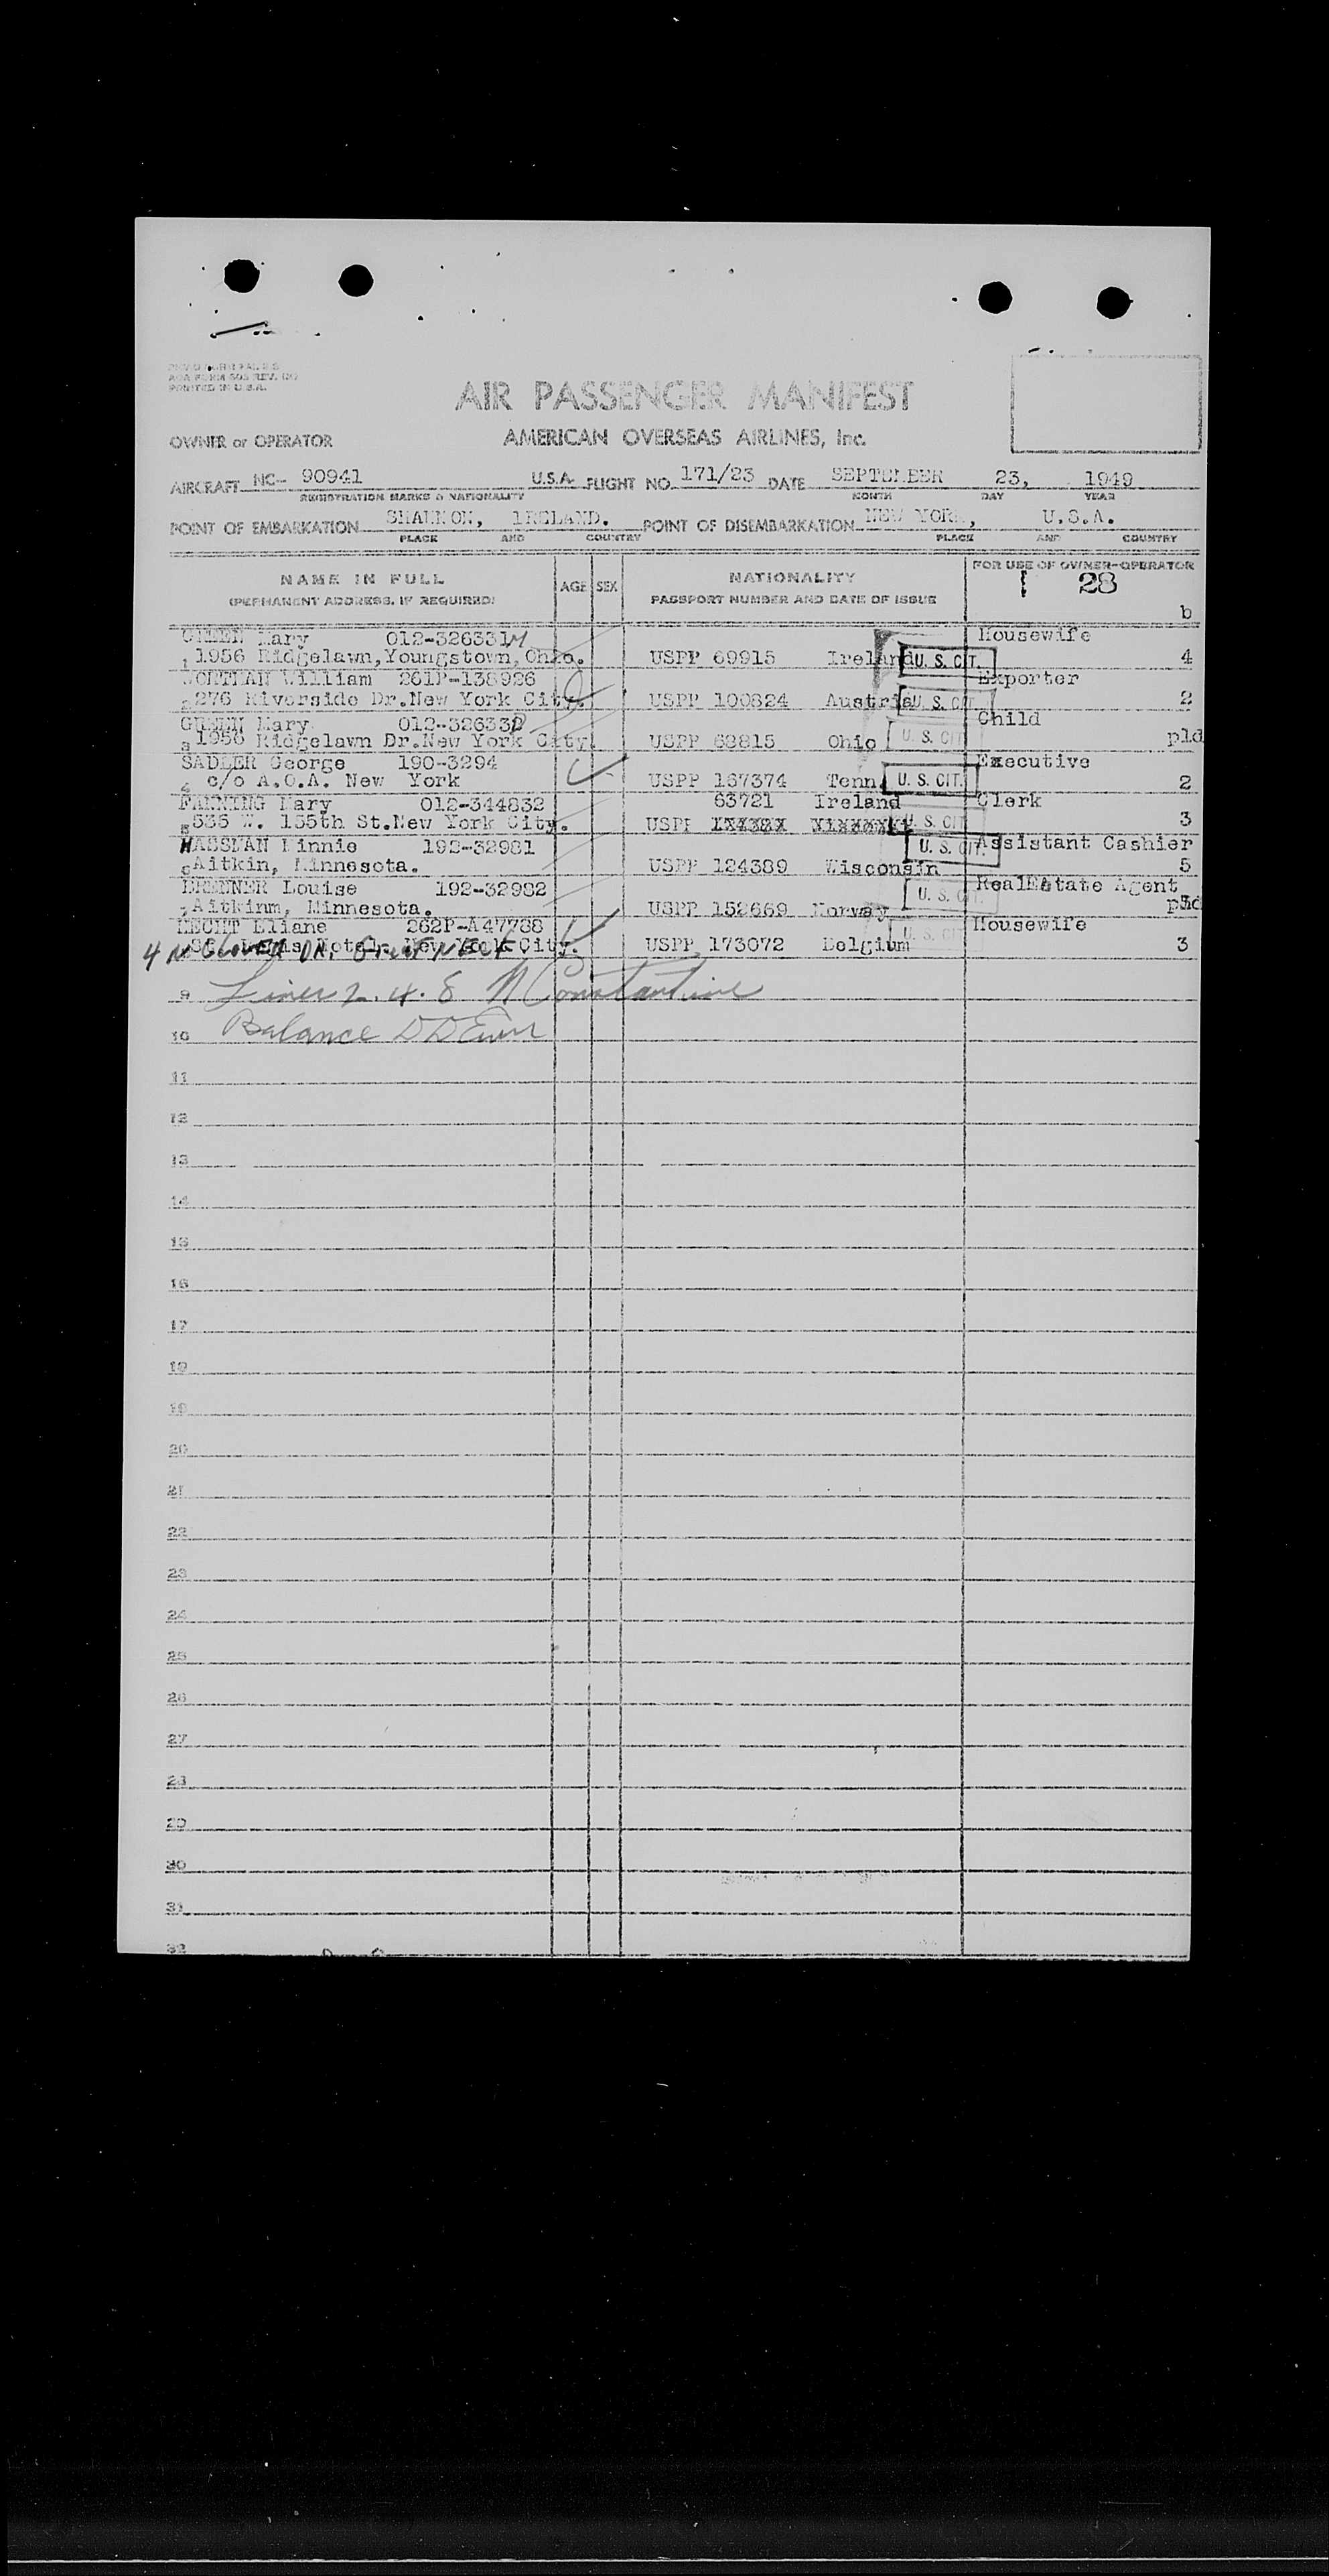 PRINTED IN U.S.A.
AIR PASSENGER MANIFEST
OWNER or OPERATOR AMERICAN OVERSEAS AIRLINES, Inc.
AIRCRAFT NC- 90941 U.S.A. FLIGHT NO. 171/23 DATE SEPTEMBER 23, 1949
REGISTRATION MARKS & NATIONALITY MONTH DAY YEAR
POINT OF EMBARKATION SHANNON, IRELAND. POINT OF DISEMBARKATION NEW YORK, U.S.A.
PLACE AND COUNTRY PLACE AND COUNTRY
NAME IN FULL AGE SEX NATIONALITY FOR USE OF OWNER-OPERATOR
(PERMANENT ADDRESS, IF REQUIRED) PASSPORT NUMBER AND DATE OF ISSUE 28
b
Mary 012-326331 Housewife
1 1956 Ridgelawn, Youngstown, Ohio. USPP 69915 Ireland U. S. CIT. 4
William 261P-138926 Exporter
2 276 Riverside Dr. New York City. USPP 100824 Austria U. S. CIT. 2
GREEN Mary 012-326332 Child
3 1956 Ridgelawn Dr. New York City. USPP 68815 Ohio U. S. CIT pld
SADLER George 190-3294 Executive
4 c/o A.O.A. New York USPP 167374 Tenn. U. S. CIT. 2
FANNING Mary 012-344832 63721 Ireland Clerk
5 536 W. 155th St. New York City. USPP U. S. CIT 3
HASSMAN Minnie 192-32981 U. S. CIT. Assistant Cashier
6 Aitkin, Minnesota. USPP 124389 Wisconsin 5
BRENNER Louise 192-32982 U. S. CIT. RealEstate Agent
7 Aitkinm, Minnesota. USPP 152669 Norway
HECHT Eliane 262P-A47788 Housewife
Hotel New York City. USPP 173072 Belgium U. S. CIT 3
4 N Clover Dr. Great Neck
9 Lines 2. 4. 8 N Constantine
10 Balance
11
12
13
14
15
16
17
18
19
20
21
22
23
24
25
26
27
28
29
30
31
32